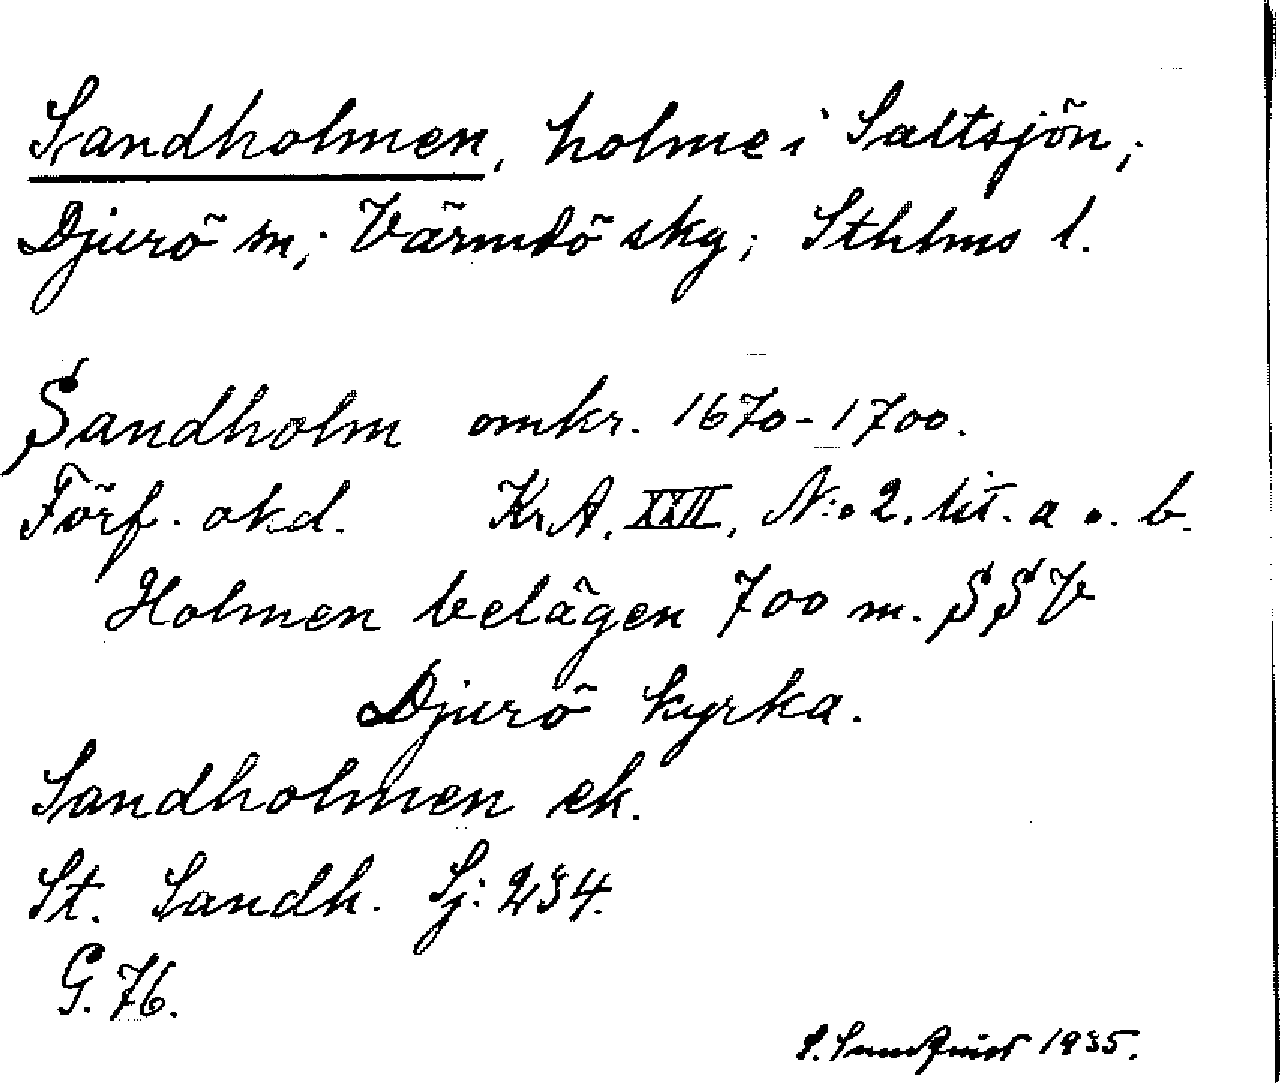 Sandholmen, holme i Saltsjön;
Djurö sn; Värmdö skg; Sthlms l.
Sandholm omkr. 1670-1700.
Förf. okd. KrA. XXII, N:o 2. lit. a o. b.
Holmen belägen 700 m. SSV
Djurö kyrka.
Sandholmen ek.
St. Sandh. Sj: 234.
G. 76.
1935.